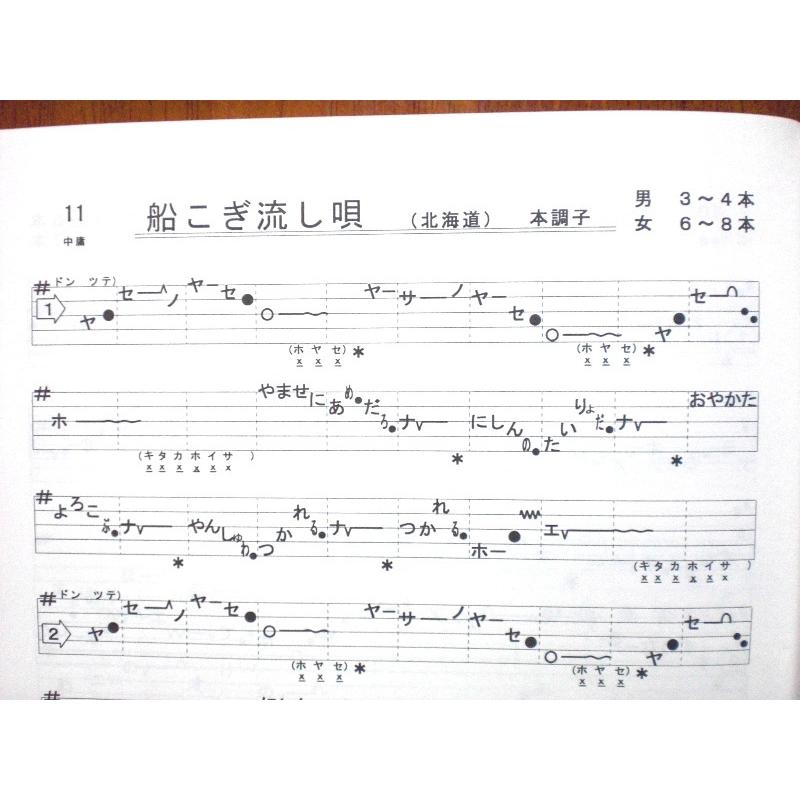 11 船こぎ流し唄 (北海道) 本調子 男 3〜4本
中庸 女 6〜8本
# ドン ツテ)
1 ヤ● セ─^ノ ヤーセ● ○ ヤーサ─ノヤーセ● ○ ヤ● セ
(ホ ヤ セ) * (ホ ヤ セ) *
x x x x x x
# ホ やませにあめだろナ にしんのたいりょだナ おやかた
(キタカホイサ ) * *
x x x x x x
# よろこぶナ やんしゅわつかれるナ つかれるホー エ
* * (キタカホイサ )
x x x x x x
# ドン ツテ)
2 ヤ● セ─^ノ ヤーセ● ○ ヤーサ─ノヤーセ● ○ ヤ● セ
(ホ ヤ セ) * (ホ ヤ セ) *
x x x x x x
#